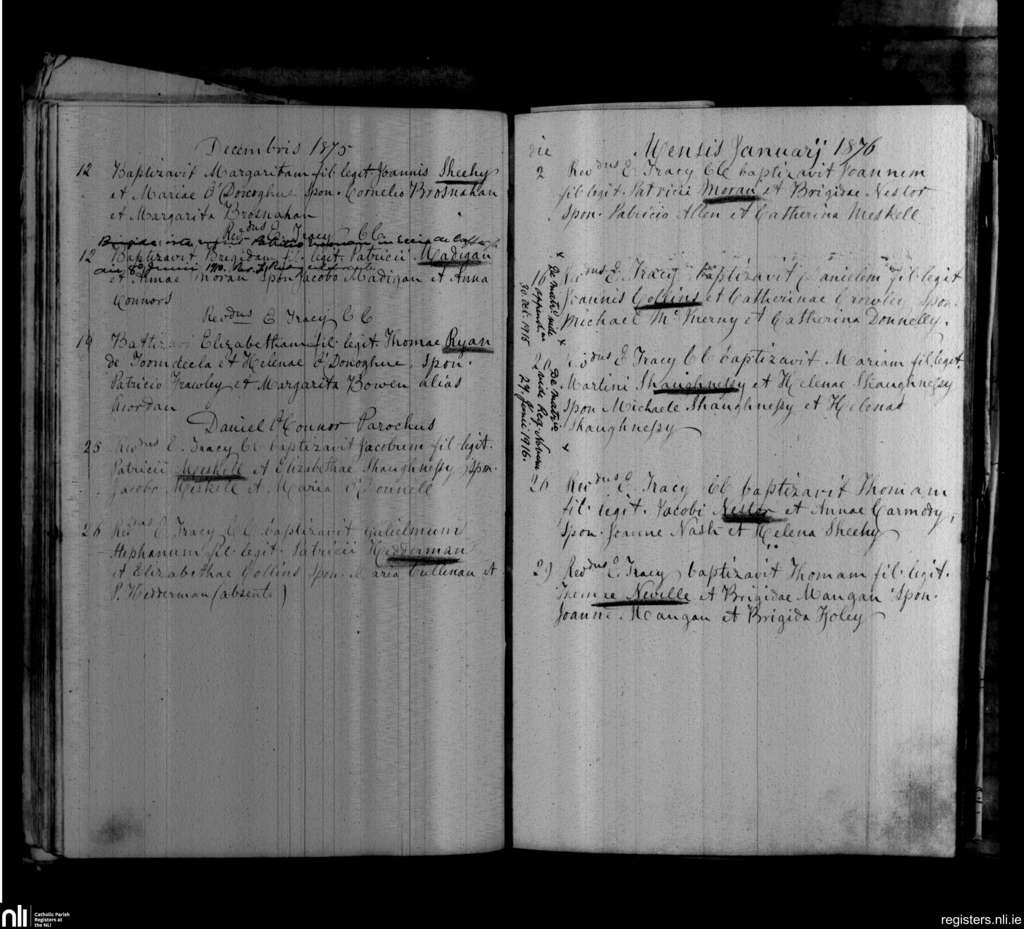 Decembris 1875
12 Baptizavit Margaritam fil legit Joannis Sheehy
et Mariae O'Donoghue Spon. Cornelio Brosnahan
et Margarita Brosnahan
Revdus E. Tracy CC.
12 Baptizavit Brigidam fil. legit. Patricii Madigan
et Annae Moran Spon Jacobo Madigan et Anna
Connors
Revdus E Tracy CC
19 Elizabetham fil legit Thomae Ryan
de et Helenae O'Donoghue, Spon.
Patricio Frawley et Margarita Bowen alias
Riordan
Daniel O'Connor Parochus
25 Revdus E. Tracy CC baptizavit Jacobum fil legit.
Patricii Meskell et Elizabethae Shaughnessy Spon.
Jacobo Meskell et Maria O'Donnell
26 Revdus E Tracy CC baptizavit Gulielmum
Stephanum fil legit. Patricii Hedderman
et Elizabethae Collins Spon. Maria Cullenan et
P. Hedderman (absente)
Mensis Januarij 1876
die
2 Revdus E. Tracy CC baptizavit Joannem
fil legit. Patricii Moran et Brigidae Nestor
Spon. Patricio Allen et Catherina Meskell
16 Revdus E. Tracy baptizavit Danielem fil legit
Joannis Collins et Catherinae Crowley Spon.
Michael McInerny et Catherina Donnelly.
x De matr. vide
append. x
30 Oct. 1915
20 Revdus E Tracy CC baptizavit Mariam fil legit.
Martini Shaughnessy et Helenae Shaughnessy
Spon Michaele Shaughnessy et Helenae
Shaughnessy
x De matrio
vide Reg. x
29 Junii 1916.
26 Revdus E. Tracy CC baptizavit Thomam
fil. legit. Jacobi Nestor et Annae Carmody,
Spon. Joanne Nash et Helena Sheehy
29 Revdus E. Tracy baptizavit Thomam fil. legit.
Thomae Neville et Brigidae Mangan Spon.
Joanne Mangan et Brigida Foley
nli
Catholic Parish
Registers at
the NLI
registers.nli.ie